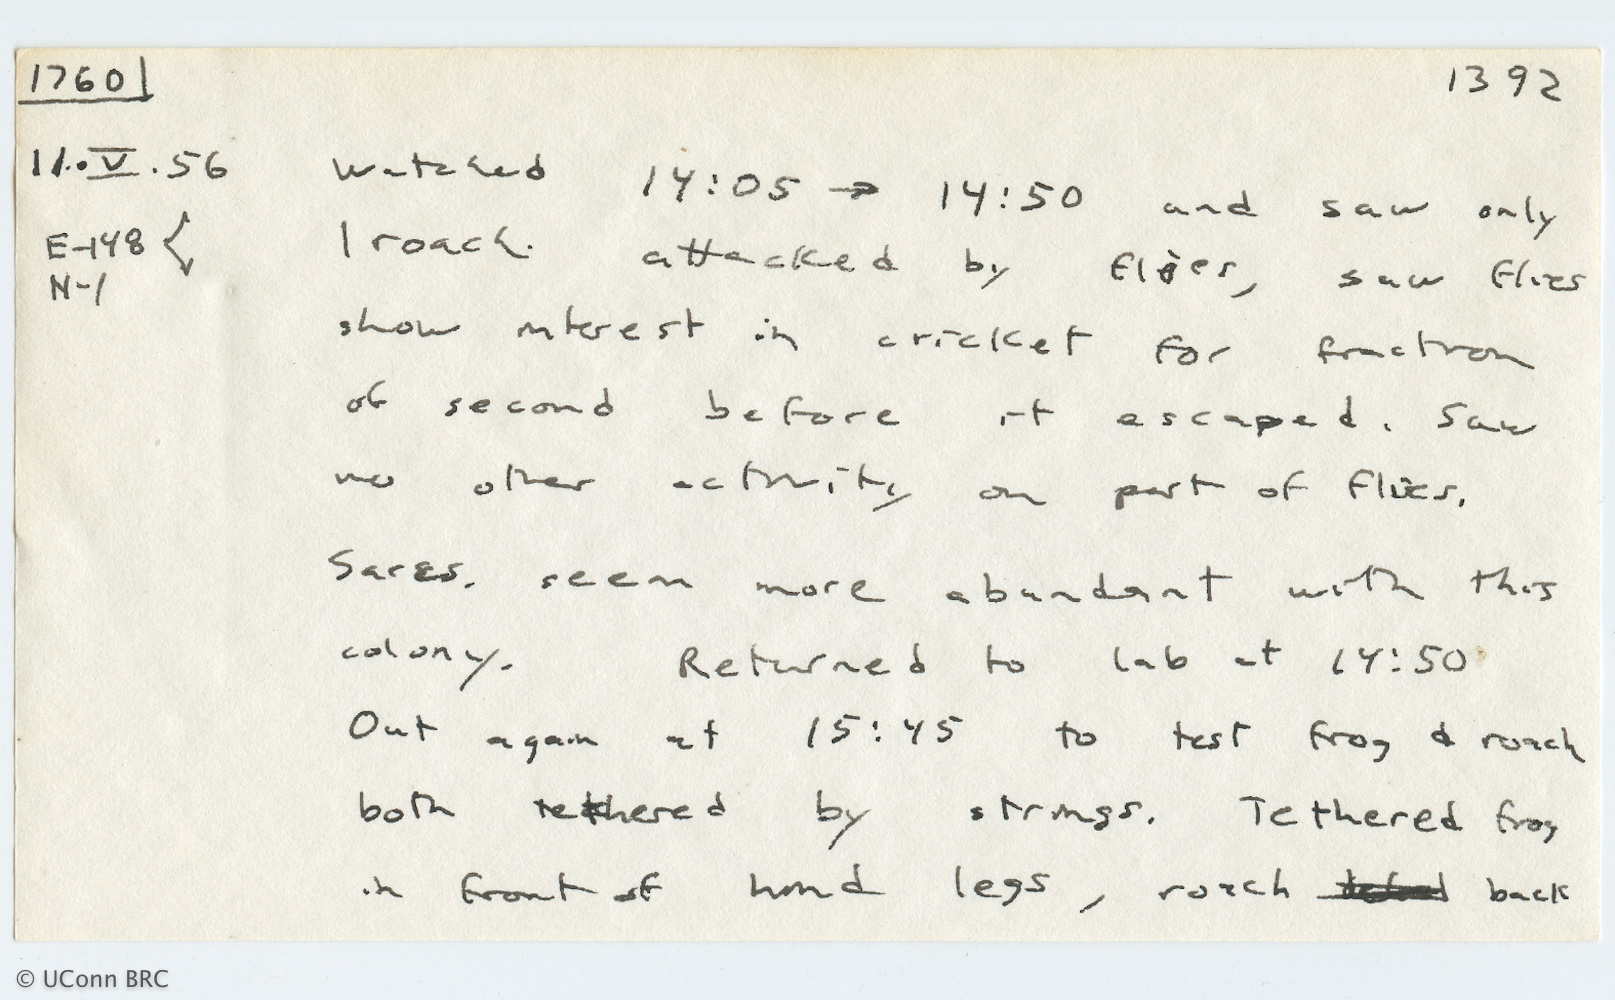 1760 1392
11.V.56 Watched 14:05 → 14:50 and saw only
E-148 1 roach. attacked by flies, saw flies
N-1
show interest in cricket for fraction
of second before it escaped. Saw
no other activity on part of flies.
Sarcs. seem more abundant with this
colony. Returned to lab at 14:50
Out again at 15:45 to test frog & roach
both tethered by strings. Tethered frog
in front of hind legs, roach back
© UConn BRC